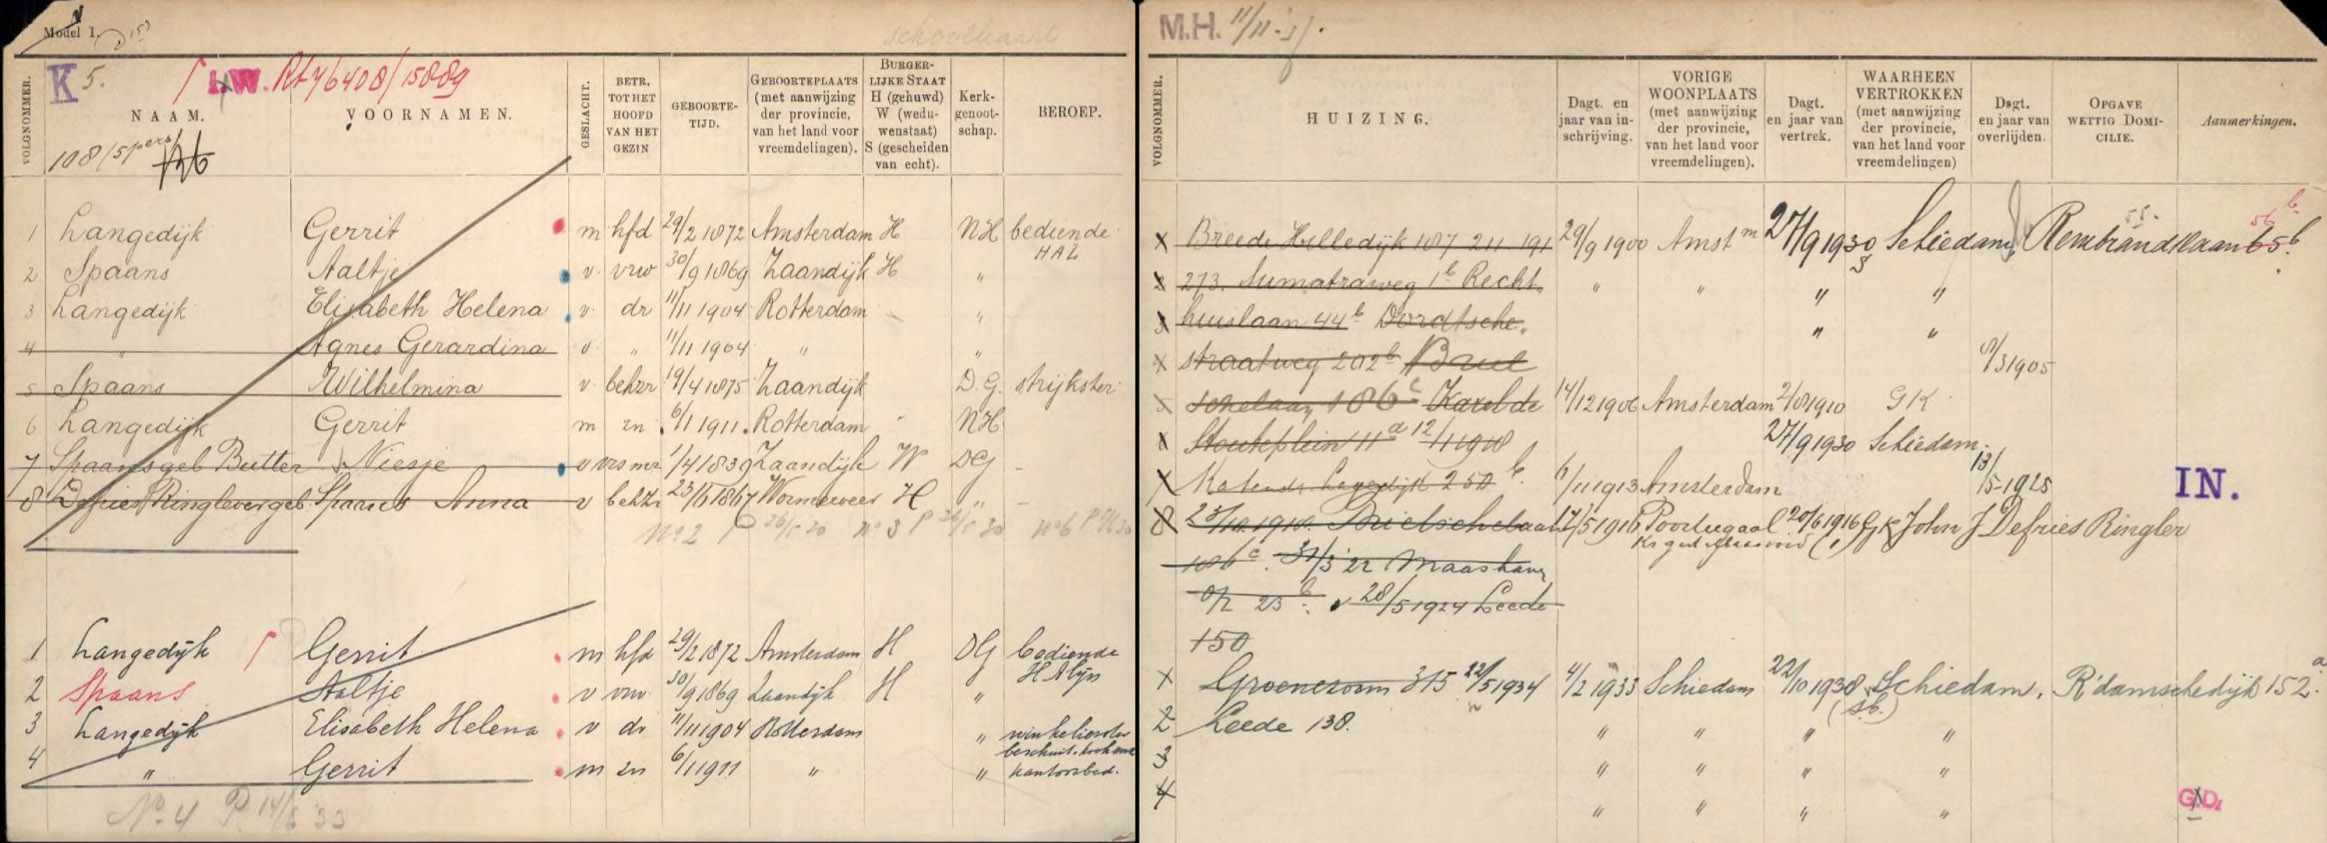 Model 1.
schoolkaart
K 5. I.W. Rt 76408/15889
VOLGNOMMER. NAAM. VOORNAMEN. GESLACHT. BETR. TOT HET HOOFD VAN HET GEZIN GEBOORTE-TIJD. GEBOORTEPLAATS (met aanwijzing der provincie, van het land voor vreemdelingen). BURGER-LIJKE STAAT H (gehuwd) W (wedu-wenstaat) S (gescheiden van echt). Kerk-genoot-schap. BEROEP.
108/5pers/
126
1 Langedijk Gerrit m hfd 29/2 1872 Amsterdam H NH bediende HAL
2 Spaans Aaltje v vrw 30/9 1869 Zaandijk H "
3 Langedijk Elisabeth Helena v dr 11/11 1904 Rotterdam - "
4 " Agnes Gerardina v " 11/11 1904 " "
5 Spaans Wilhelmina v behzr 19/4 1875 Zaandijk D.G. strijkster
6 Langedijk Gerrit m zn 6/1 1911 Rotterdam - NH
7 Spaans geb Butter Niesje v vrs mr 1/4 1839 Zaandijk W DG -
8 Defries Ringlever geb Spaans Anna v behzr 23/11 1867 Wormerveer H " -
No 2 P 26/5 30 No 3 P 26/5 30 No 6 P 30
1 Langedijk Gerrit m hfd 29/2 1872 Amsterdam H DG bediende H A lijn
2 Spaans Aaltje v vrw 30/9 1869 Zaandijk H "
3 Langedijk Elisabeth Helena v dr 11/11 1904 Rotterdam " winkelierster
4 " Gerrit m zn 6/1 1911 " " kantoorbed.
No 4 P. 14/6 33
M.H. 11/11
VOLGNOMMER. HUIZING. Dagt. en jaar van in-schrijving. VORIGE WOONPLAATS (met aanwijzing der provincie, van het land voor vreemdelingen). Dagt. en jaar van vertrek. WAARHEEN VERTROKKEN (met aanwijzing der provincie, van het land voor vreemdelingen) Dagt. en jaar van overlijden. OPGAVE WETTIG DOMI-CILIE. Aanmerkingen.
55. 56 b
1 Breede Hilledijk 187 211 191 29/9 1900 Amstm 27/9 1930 Schiedam, Rembrandtlaan 65b
2 273. Sumatraweg 1b Recht- " " " "
3 huislaan 44b Dordtsche " "
4 straatweg 202b Briel 9/3 1905
5 schelaan 186c Karel de 14/12 1906 Amsterdam 2/8 1910 GK
6 Stouteplein 11a 12/1 1918 27/9 1930 Schiedam.
7 Katendr. Lagedijk 250 b. 6/11 1913 Amsterdam 13/5 1925 IN.
8 23/10 1918. Brielschelaan 17/5 1916 Poortugaal 20/6 1916 GK John J Defries Ringler
186c. 31/3 22 Maashaven
o/z 23b. 28/5 1924 Leede
150
1 Groenezoom 315 22/5 1934 4/2 1933 Schiedam 22/10 1938 Schiedam, R'damschedijk 152a
2 Leede 138. " " " "
3 " " " "
4 " " " "
G.D.